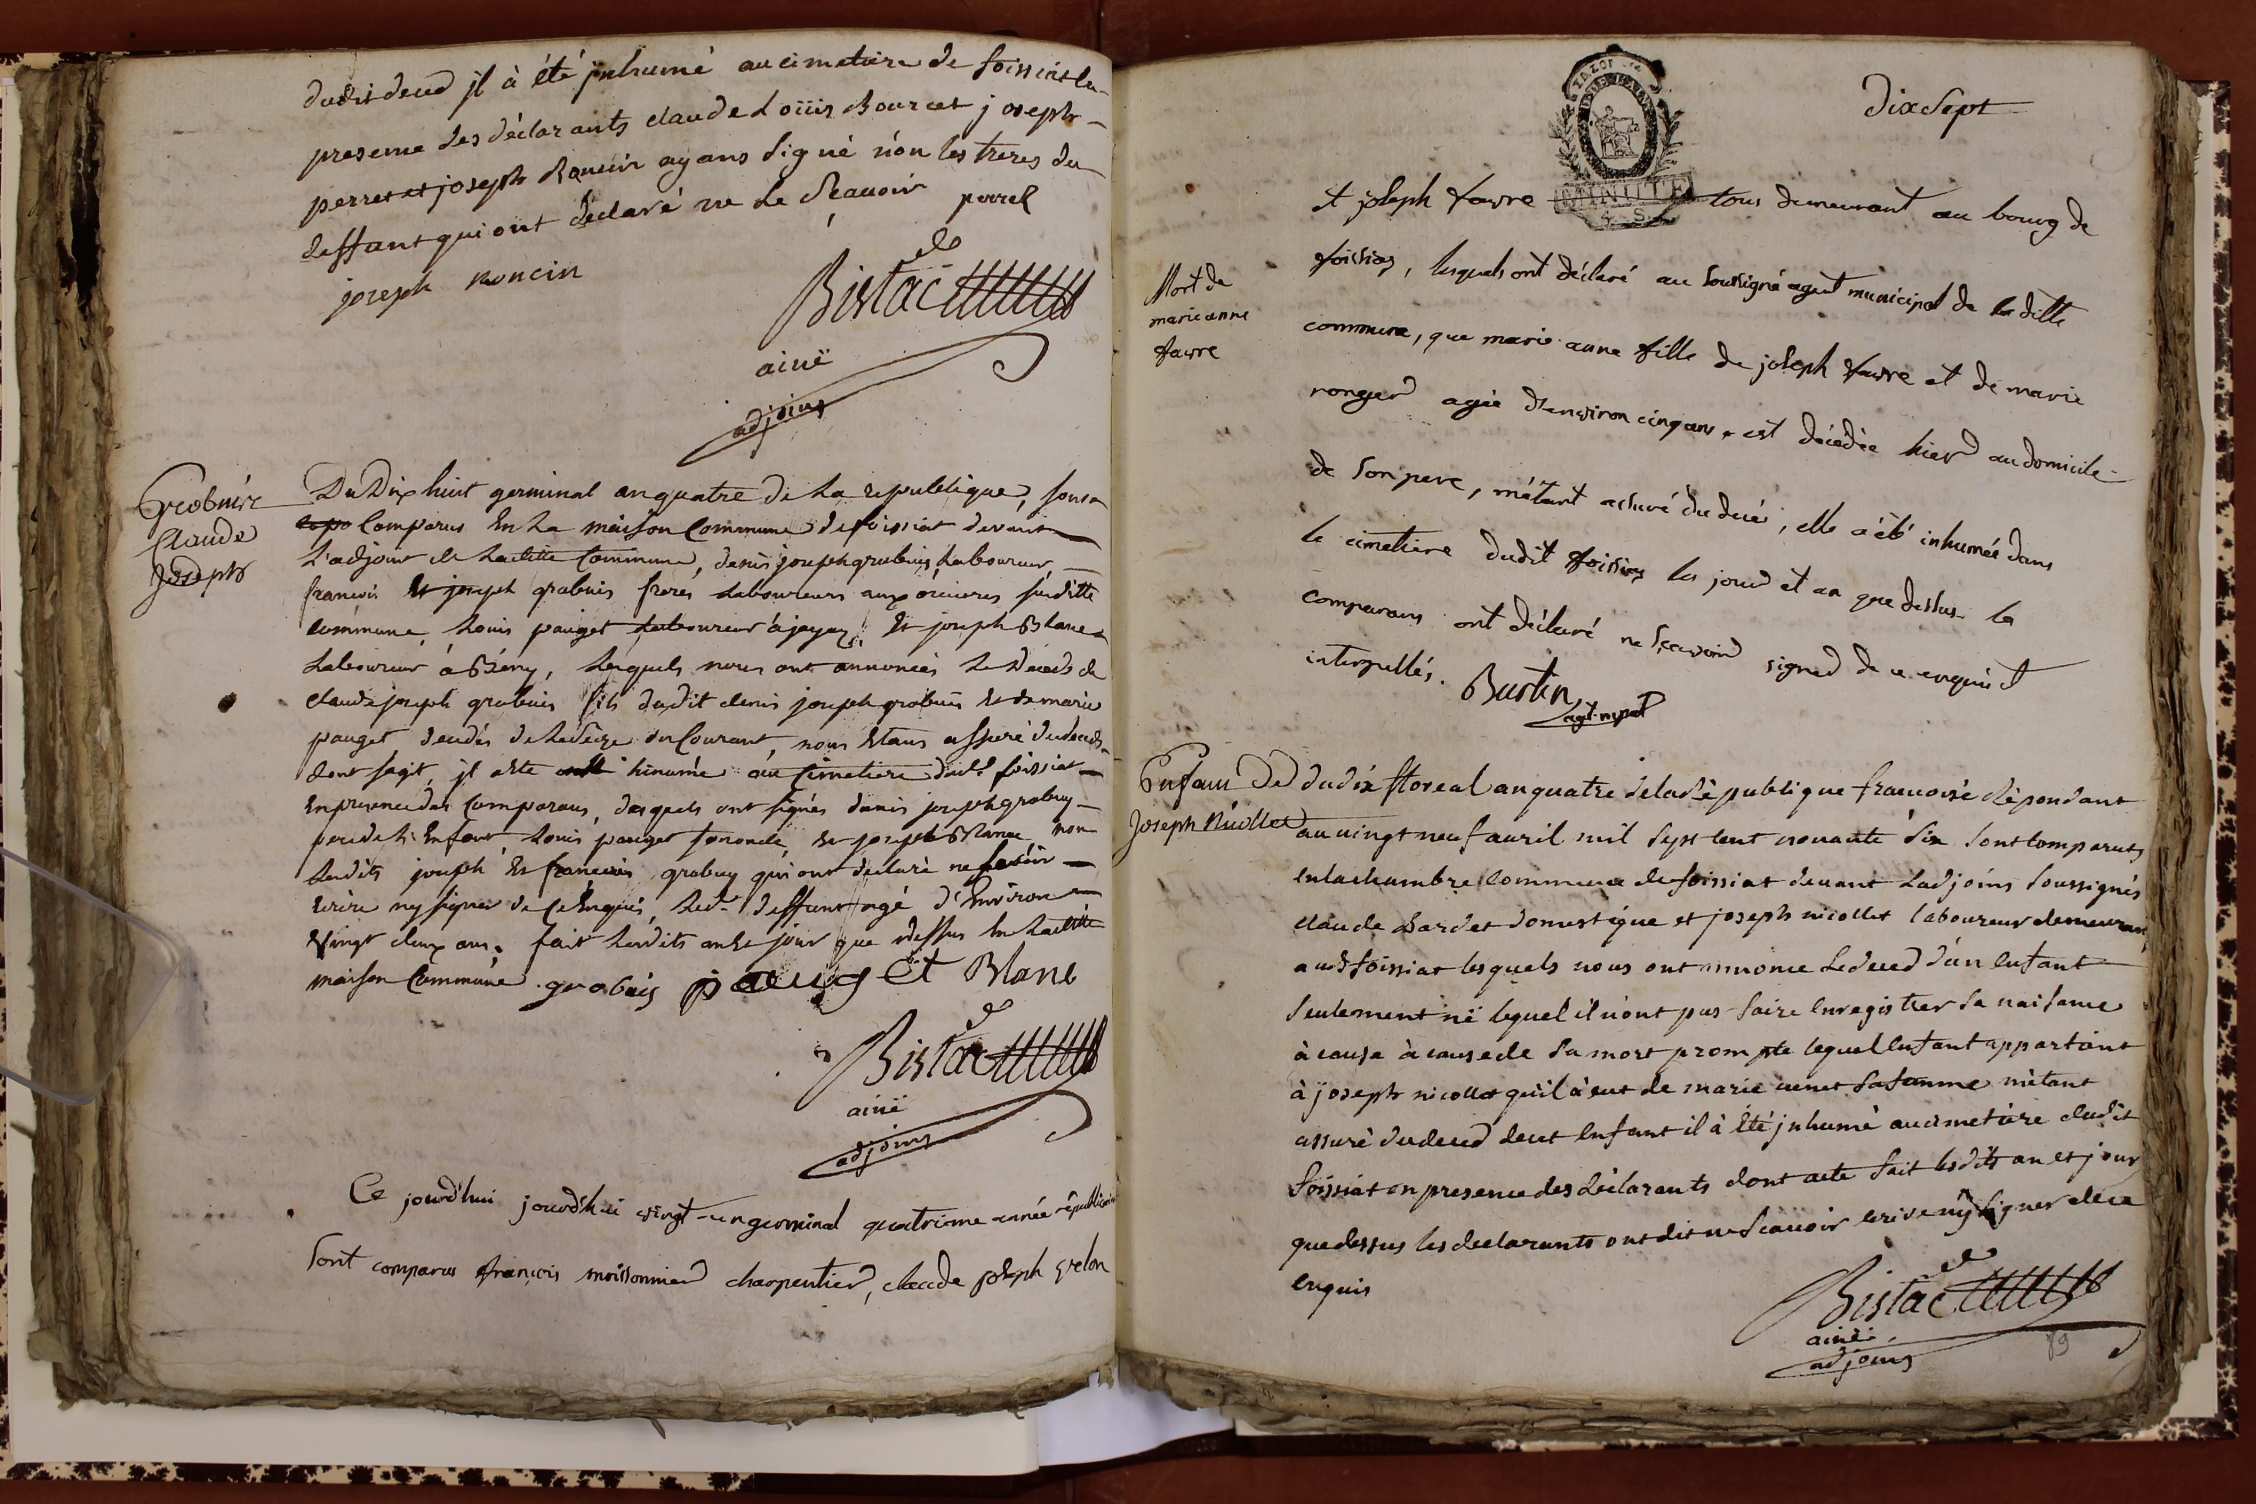 dudit deced jl à été jnhumé au cimetiere de foissiat en
presence des déclarants claude Loüis Bourcet joseph
perret et joseph Roncin ayans Signé nón les freres du
deffunt qui ont déclaré ne le sçauoir perret
joseph Roncin
Bistac
ainé
adjoint
Grobuis
Claude
Joseph
Du Dix huit germinal an quatre de La republique, sont
Comparus en La maison Commune de foissiat devant
L'adjoint de Laditte Commune, denis joseph grobuis Laboureur,
francois et joseph grobuis freres Laboureurs aux sudditte
commune, Louis pauget Laboureur à jayaz, et joseph Blanc
Laboureur à Bény, Lesquels nous ont annoncés Le Déceds de
claude joseph grobuis fils dudit denis joseph grobuis et de marie
pauget, decedés du Courant, nous Etans assuré du deceds
dont sagit, jl a été hinumée au Cimetiere dud. foissiat
en presence des Comparans, desquels ont signés denis joseph grobuy
pere de L'Enfant, Louis pauget son oncle, et joseph Blanc non
Lesdits joseph et francois grobuy qui ont declaré ne savoir
écrire ny signer de Ce Enquis, Led. deffunt agé d'Environ
Vingt deux ans, fait Lesdits an et jour que dessus en Laditte
maison Commune. grobuis pauget Blanc
Bistac
ainé
adjoint
Ce jourd'hui jourd'hui vingt-un germinal quatrieme année républicaine
Sont comparus françois moissonnier charpentier, claude joseph velon
dix Sept
MINUTE
et joseph favre tous demeurant au bourg de
foissiaz, lesquels ont déclaré au soussigné agent municipal de la ditte
Mort de
marie anne
favre
commune, que marie anne fille de joseph favre et de marie
ronger agée d'environ cinq ans, est décédée hier au domicile
de son pere, m'étant assuré du decé, elle a été inhumée dans
le cimetiere dudit foissiaz les jour et an que dessus les
comparans ont déclaré ne sçavoir signer de ce enquis et
interpellés. Burtin
agt. mpal
Enfant De
Joseph Nicollet
du dix floreal an quatre de la république francoise répondant
au uingt neuf auril mil sept cent nonante six sont comparuts
en la chambre commune de foissiat deuant Ladjoins soussignés
claude Bardet domestique et joseph nicollet laboureur demeurant
aud foissiat lesquels nous ont annoncé le deced d'un enfant
seulement né lequel il n'ont pas faire enregistrer sa naissance
à cause à cause de sa mort prompte lequel enfant appartient
à joseph nicollet qu'il à eut de marie sa famme m'étant
assuré du deced dect enfant il à été jnhumé au cimetiere dudit
foissiat en presence des déclarants dont acte fait lesdits an et jour
que dessus les declarants ont dit ne sçauoir ecrire ny signer de ce
enquis
Bistac
ainé
adjoins
89